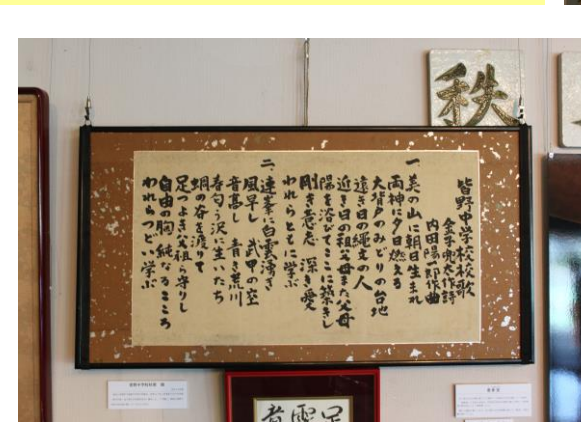 皆野中学校校歌
金子兜太作詩
内田陽一郎作曲
一 美の山に朝日生まれ
両神に夕日燃える
大背戸のみどりの台地
遠き日の縄文の人
近き日の祖父母また父母
陽を浴びてここに築きし
剛き意志 深き愛
われらともに学ぶ
二、連峯に白雲湧き
風早し 武甲の空
音高し 青き荒川
春匂う沢に生いたち
蜩の谷を渡りて
足つよき父祖ら守りし
自由の胸 純なるこころ
われらつどい学ぶ
秩